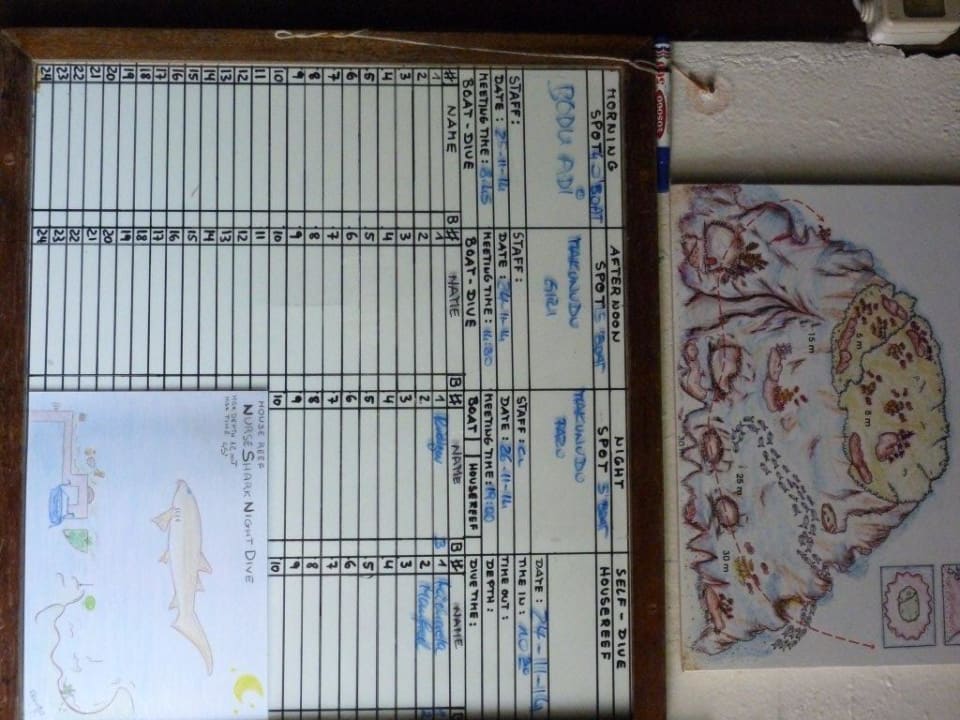 MORNING
SPOT 40' BOAT
BODU ADI
STAFF:
DATE: 25-11-14
MEETING TIME: 8:45
BOAT - DIVE
# NAME B
1
2
3
4
5
6
7
8
9
10
11
12
13
14
15
16
17
18
19
20
21
22
23
24
AFTERNOON
SPOT 5' BOAT
MAKUNUDU
GIRI
STAFF:
DATE: 24-11-14
MEETING TIME: 14:30
BOAT - DIVE
# NAME B
1
2
3
4
5
6
7
8
9
10
11
12
13
14
15
16
17
18
19
20
21
22
23
24
NIGHT
SPOT 5' BOAT
MAKUNUDU
FARU
STAFF:
DATE: 26-11-14
MEETING TIME: 17:00
BOAT HOUSEREEF
# NAME B
1
2
3
4
5
6
7
8
9
10
SELF - DIVE
HOUSEREEF
DATE: 24-11-14
TIME IN: 10 30
TIME OUT:
DEPTH:
DIVE TIME:
# NAME
1
2 Manfred
3
4
5
6
7
8
9
10
HOUSE REEF
NURSE SHARK NIGHT DIVE
MAX DEPTH 12 MT
MAX TIME 45'
5 m
8 m
15 m
25 m
30 m
30